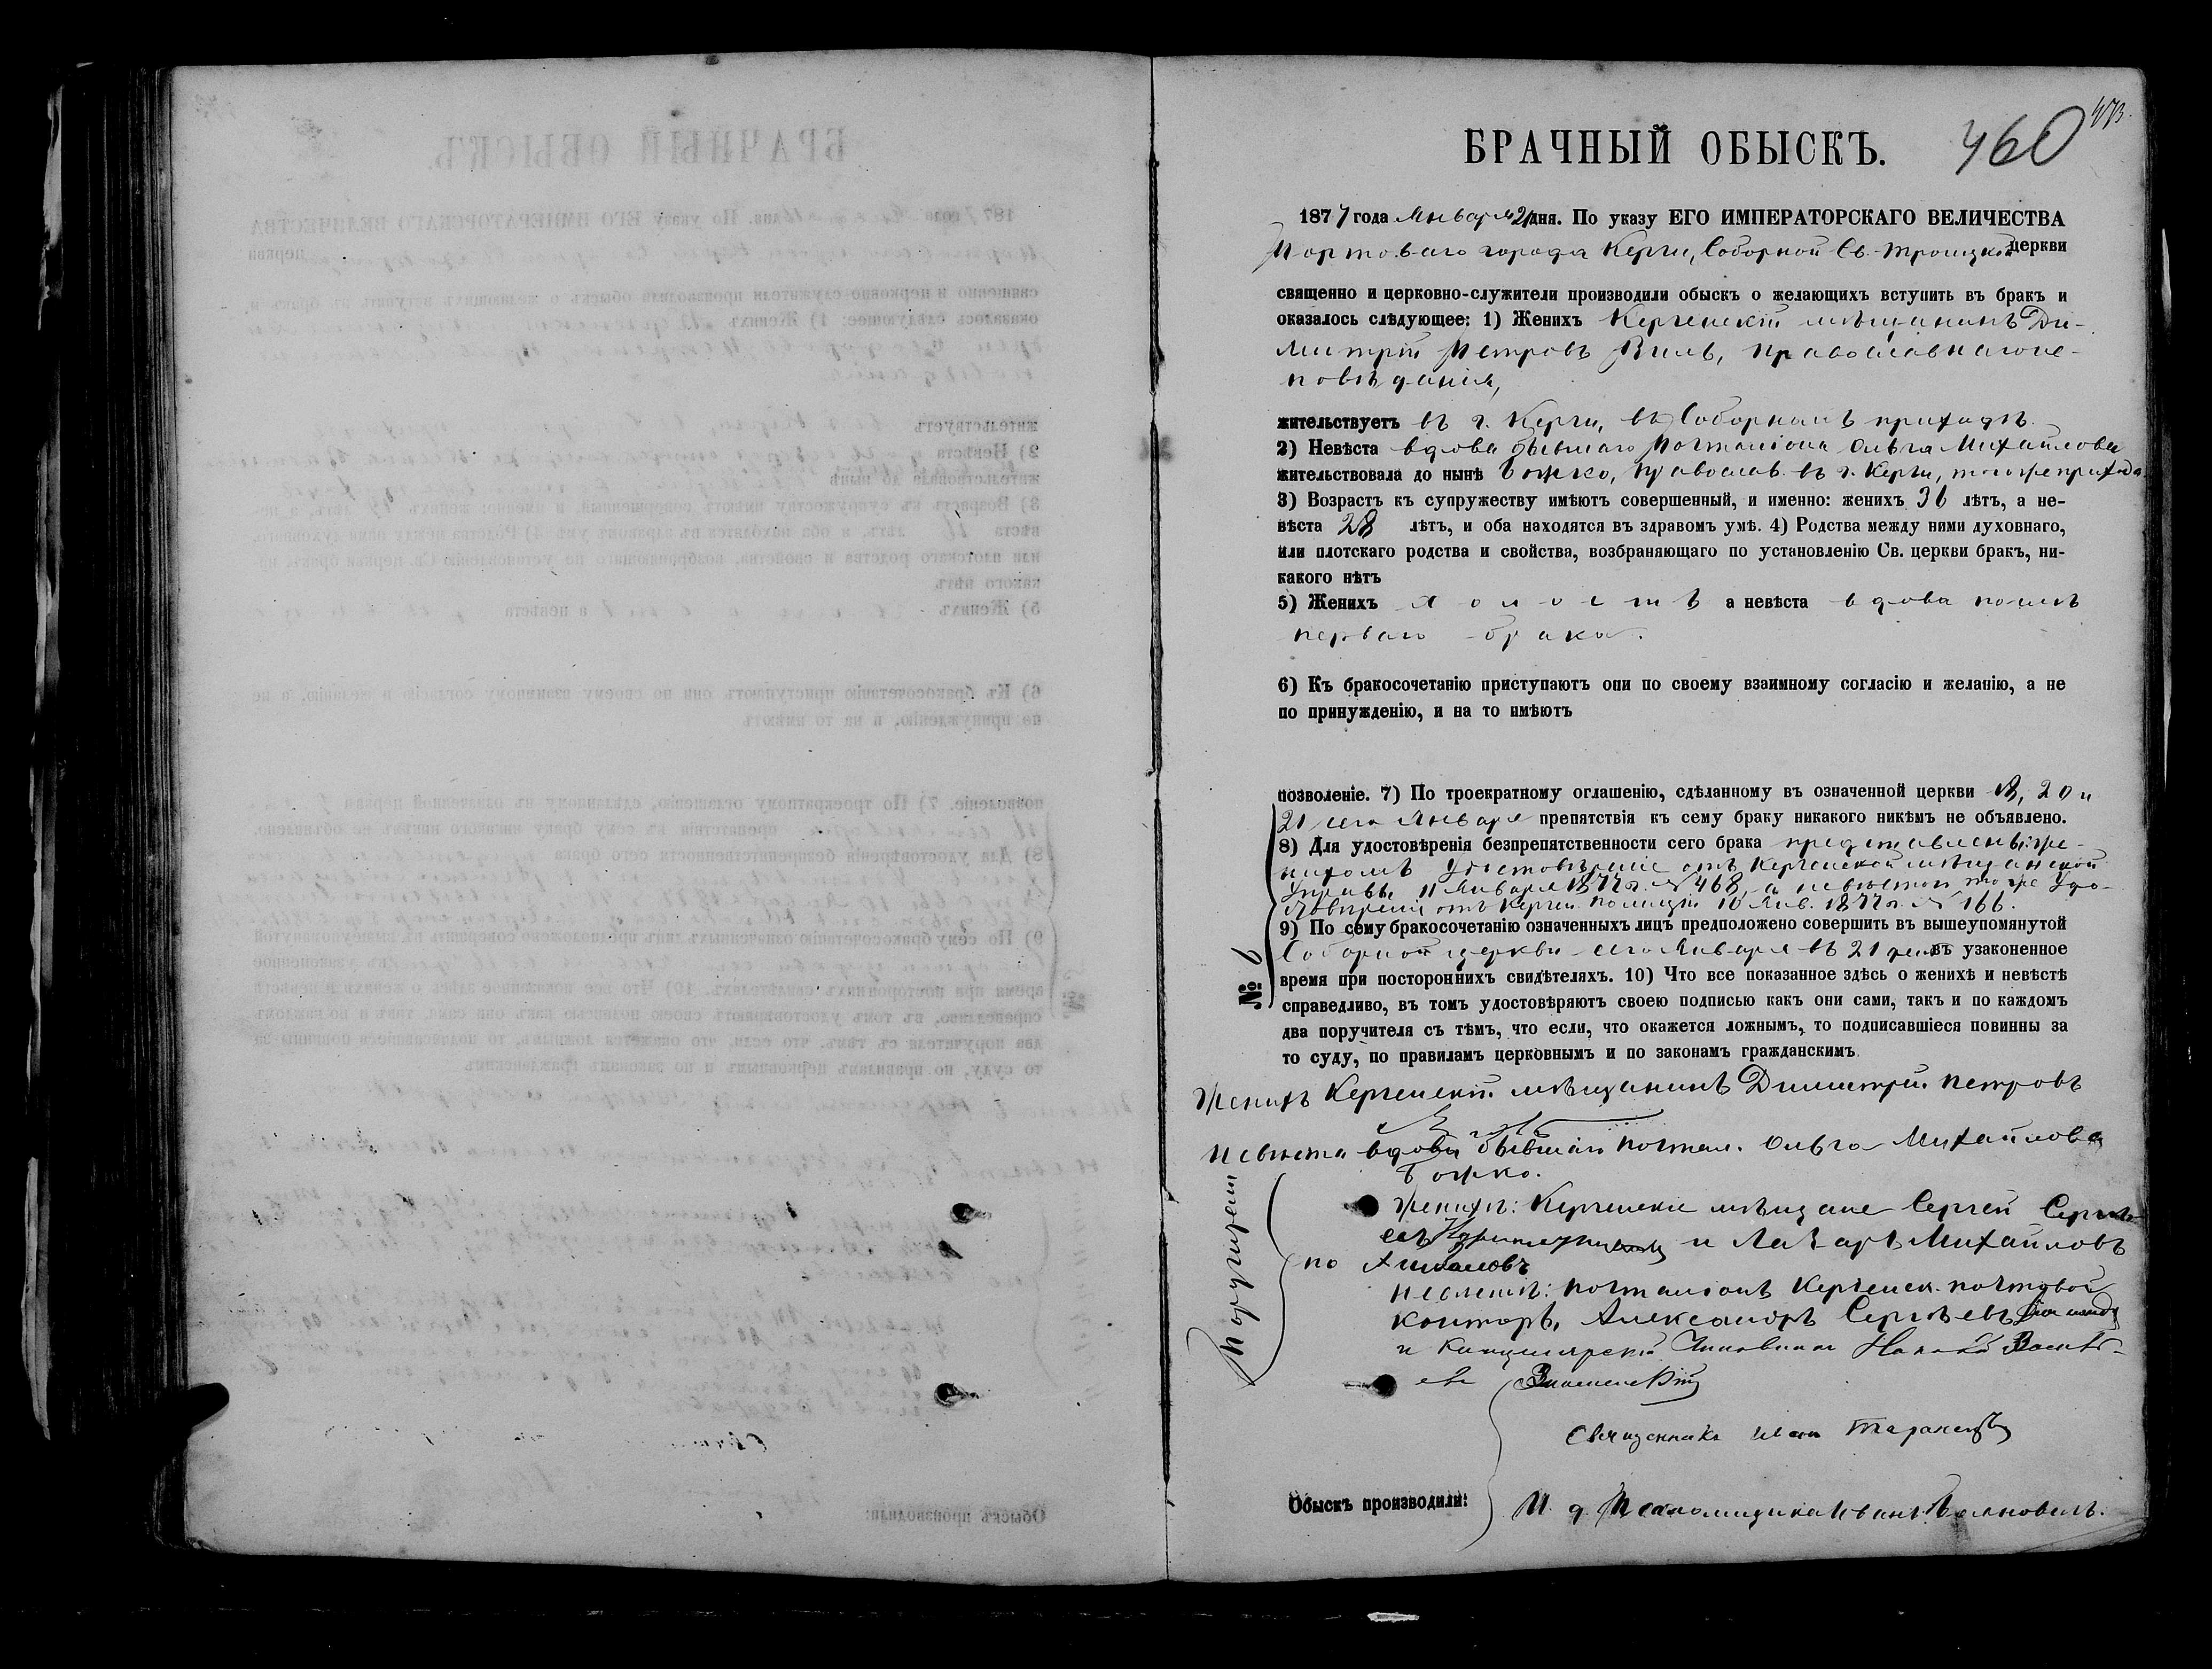 473.
БРАЧНЫЙ ОБЫСКЪ. 460
1877 года Января 21 дня. По указу ЕГО ИМПЕРАТОРСКАГО ВЕЛИЧЕСТВА
Портоваго города Керчи, Соборной Св. Троицкой церкви
священно и церковно-служители производили обыскъ о желающихъ вступить въ бракъ и
оказалось слѣдующее: 1) Женихъ Керченскій мѣщанинъ Ди-
митрій Петровъ православнаго ис-
повѣданія,
жительствуетъ въ г. Керчи, въ Соборномъ приходѣ.
2) Невѣста вдова бывшаго Почталіона Ольга Михайлова
жительствовала до нынѣ Божко, православ. въ г. Керчи, того же прихода
3) Возрастъ къ супружеству имѣютъ совершенный, и именно: женихъ 36 лѣтъ, а не-
вѣста 28 лѣтъ, и оба находятся въ здравомъ умѣ. 4) Родства между ними духовнаго,
или плотскаго родства и свойства, возбраняющаго по установленію Св. церкви бракъ, ни-
какого нѣтъ
5) Женихъ холостъ а невѣста вдова послѣ
перваго брака.
6) Къ бракосочетанію приступаютъ они по своему взаимному согласію и желанію, а не
по принужденію, и на то имѣютъ
позволеніе. 7) По троекратному оглашенію, сдѣланному въ означенной церкви 20 и
21 сего Января препятствія къ сему браку никакого никѣмъ не объявлено.
8) Для удостовѣренія безпрепятственности сего брака представлены: же-
нихомъ Удостовѣреніе отъ Керченской мѣщанской
Управы, 11 Января 1877 г. № 468, а невѣстой тоже Удо-
стовѣреніе отъ Керчен. Полиціи 10 Янв. 1877 г. № 166.
9) По сему бракосочетанію означенныхъ лицъ предположено совершить въ вышеупомянутой
Соборной церкви сего Января въ 21 день въ узаконенное
№ 6
время при постороннихъ свидѣтеляхъ. 10) Что все показанное здѣсь о женихѣ и невѣстѣ
справедливо, въ томъ удостовѣряютъ своею подписью какъ они сами, такъ и по каждомъ
два поручителя съ тѣмъ, что если, что окажется ложнымъ, то подписавшіеся повинны за
то суду, по правиламъ церковнымъ и по законамъ гражданскимъ.
Женихъ Керченскій мѣщанинъ Димитрій Петровъ
Невѣста вдова бывшаго Почтал. Ольга Михайлова
Божко.
Поручители
по
Женихѣ: Керченскіе мѣщане Сергей Сергѣ-
евъ и Лазарь Михайловъ
Невѣстѣ: Почталіонъ Керченск. почтовой
Конторы, Александръ Сергѣевъ
и Канцелярскій Чиновникъ
Знаменскій
Священникъ
Обыскъ производили:
И. д. Псаломщика Иванъ